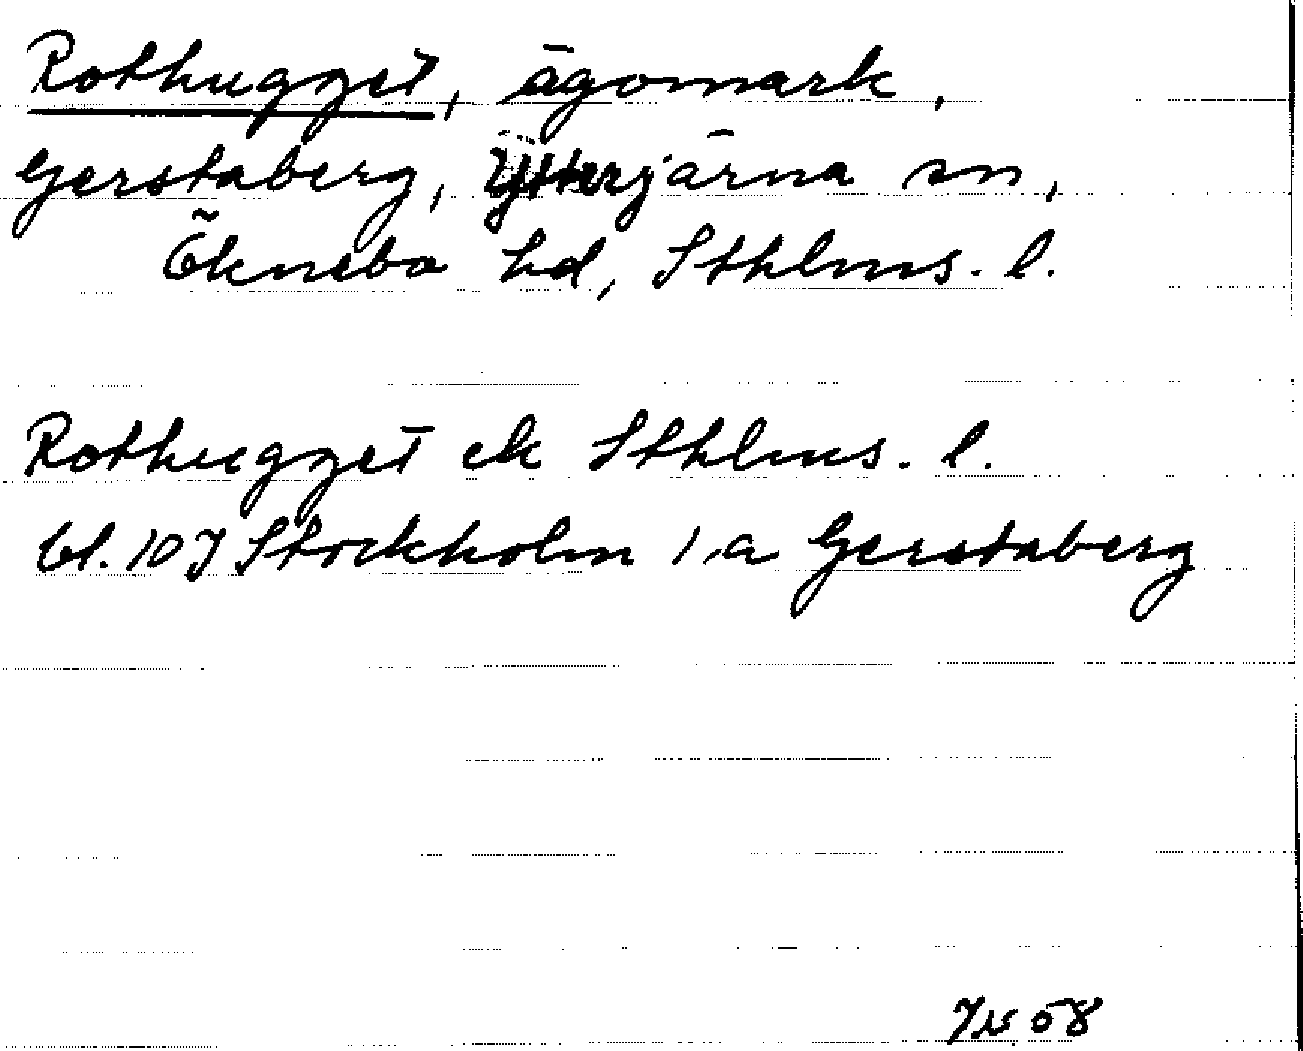 Rothugget, ägomark,
Gerstaberg, Ytterjärna sn,
Öknebo hd, Sthlms. l.
Rothugget ek Sthlms. l.
bl. 10J Stockholm 1.a Gerstaberg
58